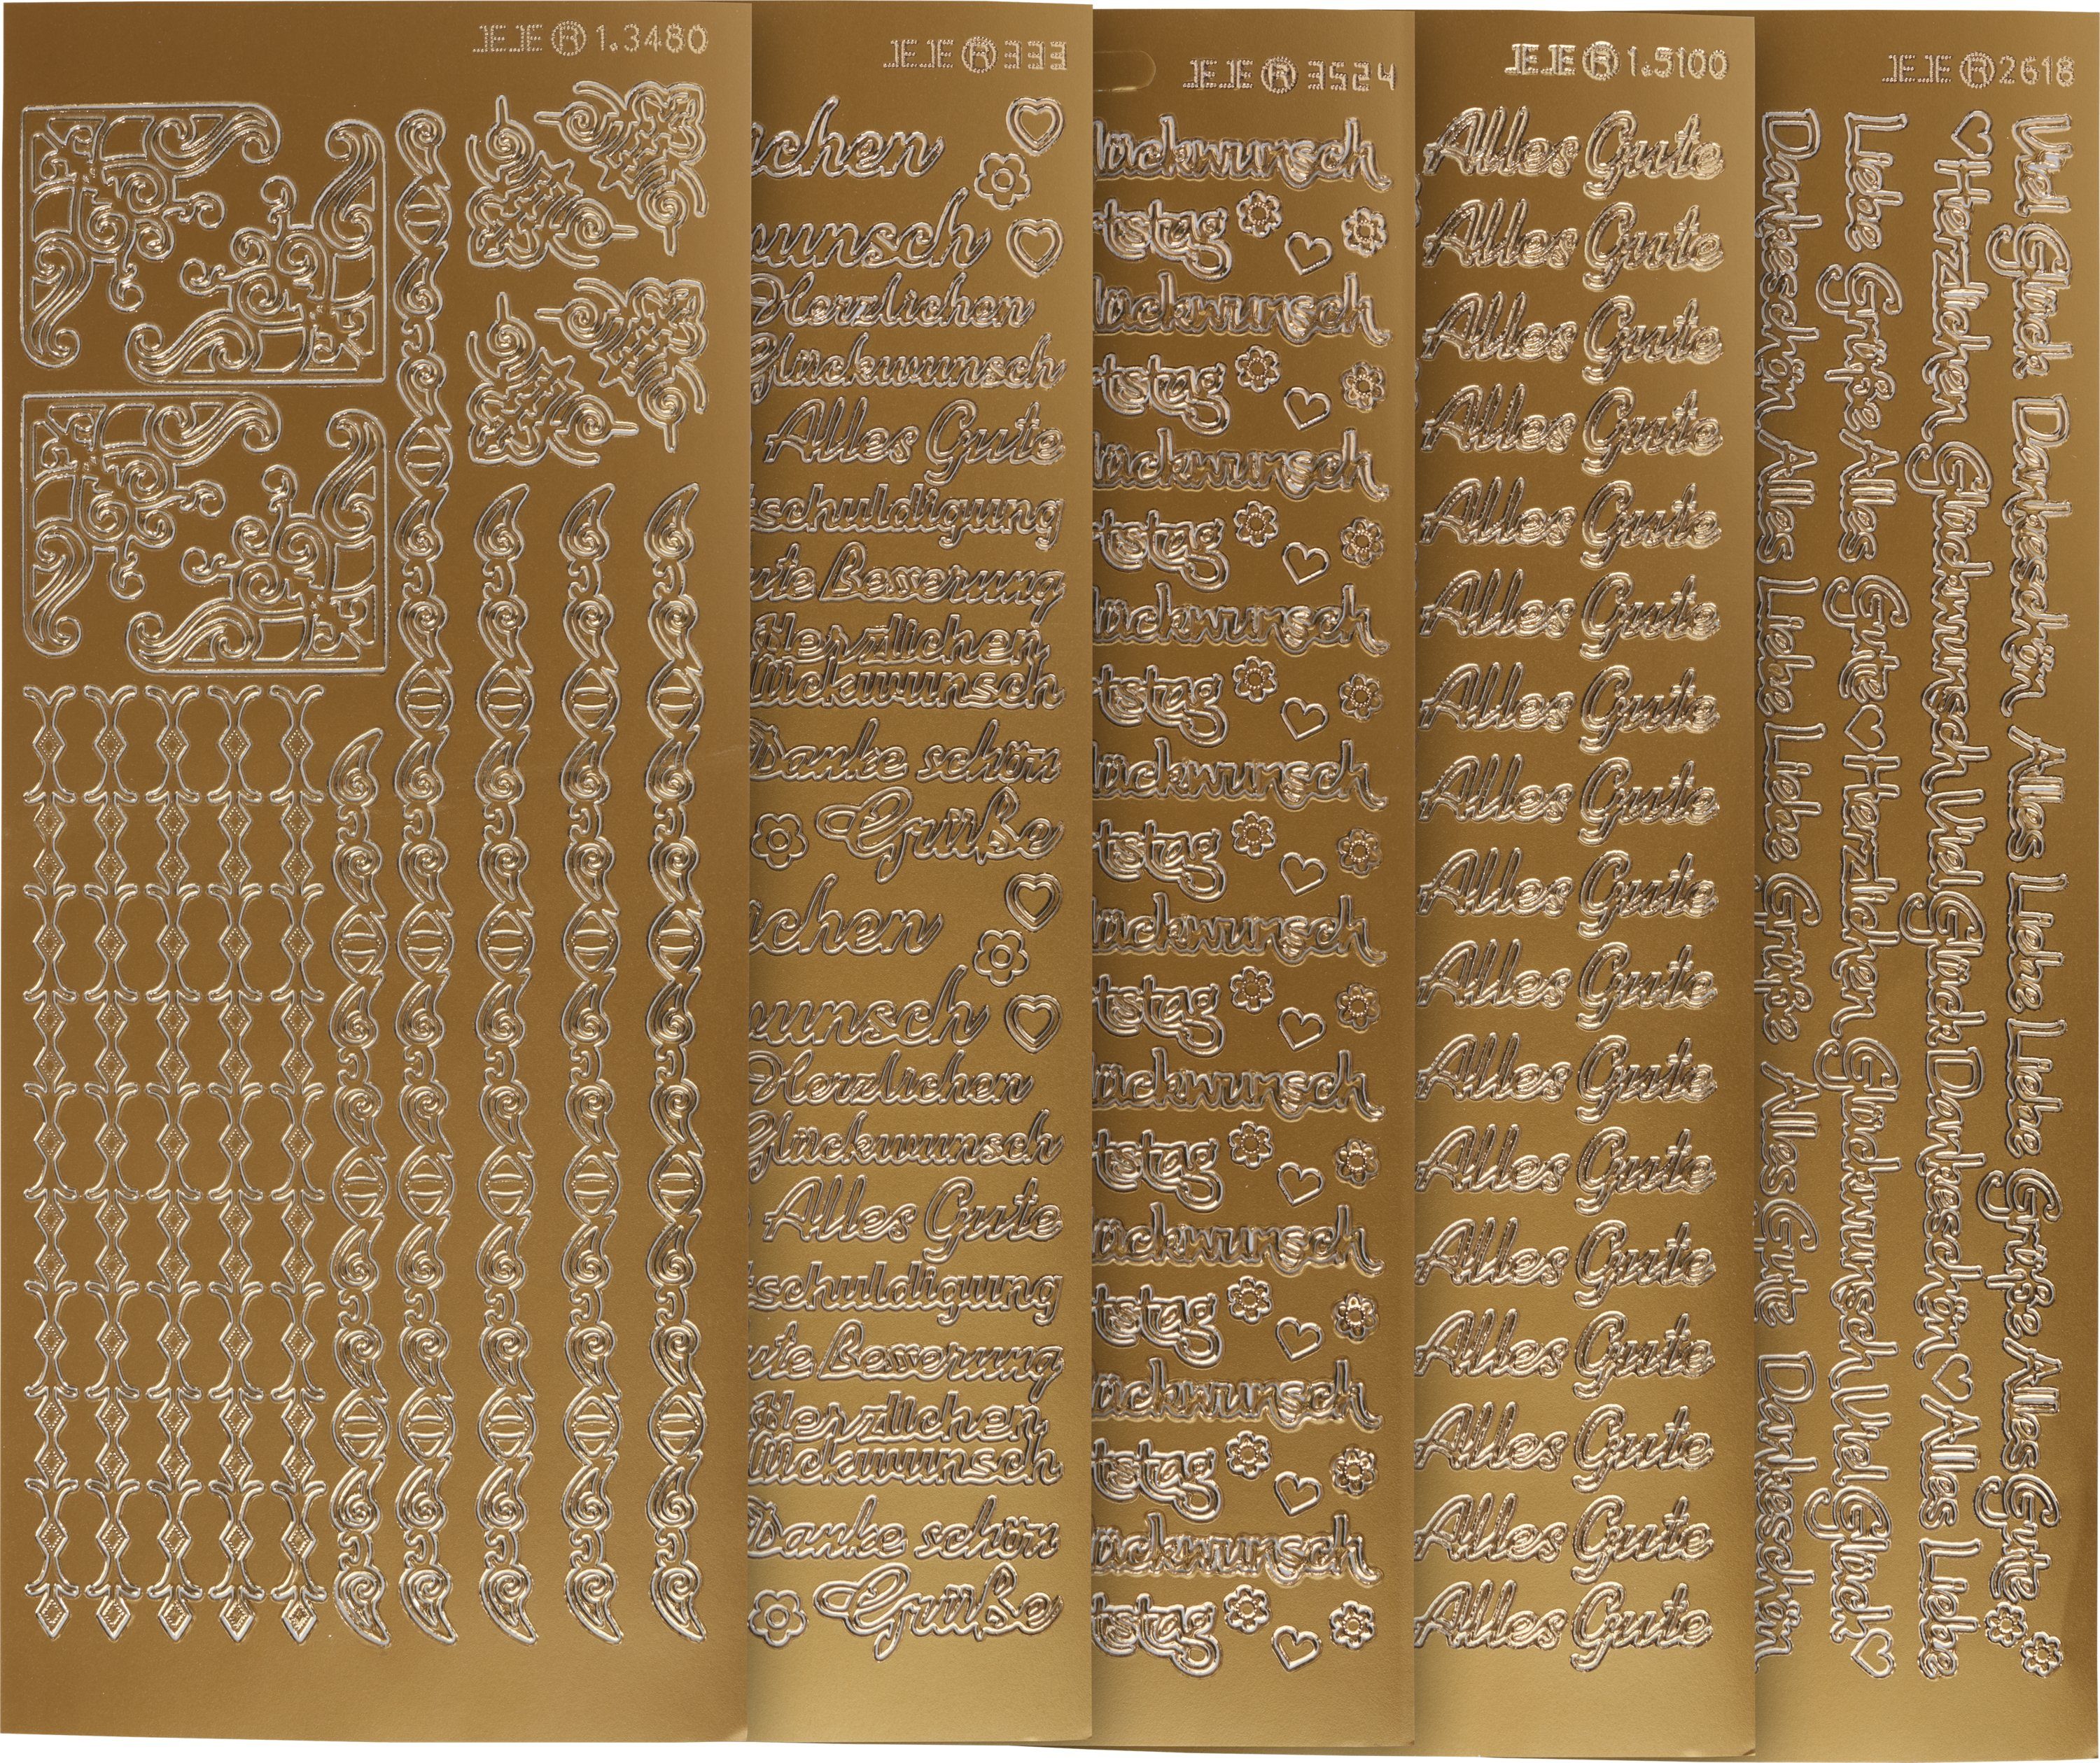 JEJE ® 1.3480
JEJE ® 333
ichen
wunsch
Herzlichen
Glückwunsch
Alles Gute
tschuldigung
ute Besserung
Herzlichen
lückwunsch
Danke schön
Grüße
ichen
wunsch
Herzlichen
Glückwunsch
Alles Gute
tschuldigung
ute Besserung
Herzlichen
lückwunsch
Danke schön
Grüße
JEJE ® 3524
lückwunsch
tstag
lückwunsch
tstag
lückwunsch
tstag
lückwunsch
tstag
lückwunsch
tstag
lückwunsch
tstag
lückwunsch
tstag
lückwunsch
tstag
lückwunsch
tstag
lückwunsch
tstag
JEJE ® 1.5100
Alles Gute
Alles Gute
Alles Gute
Alles Gute
Alles Gute
Alles Gute
Alles Gute
Alles Gute
Alles Gute
Alles Gute
Alles Gute
Alles Gute
Alles Gute
Alles Gute
Alles Gute
Alles Gute
Alles Gute
JEJE ® 2618
Viel Glück Dankeschön Alles Liebe Liebe Grüße Alles Gute
Herzlichen Glückwunsch Viel Glück Dankeschön Alles Liebe
Liebe Grüße Alles Gute Herzlichen Glückwunsch Viel Glück
Dankeschön Alles Liebe Liebe Grüße Alles Gute Dankeschön